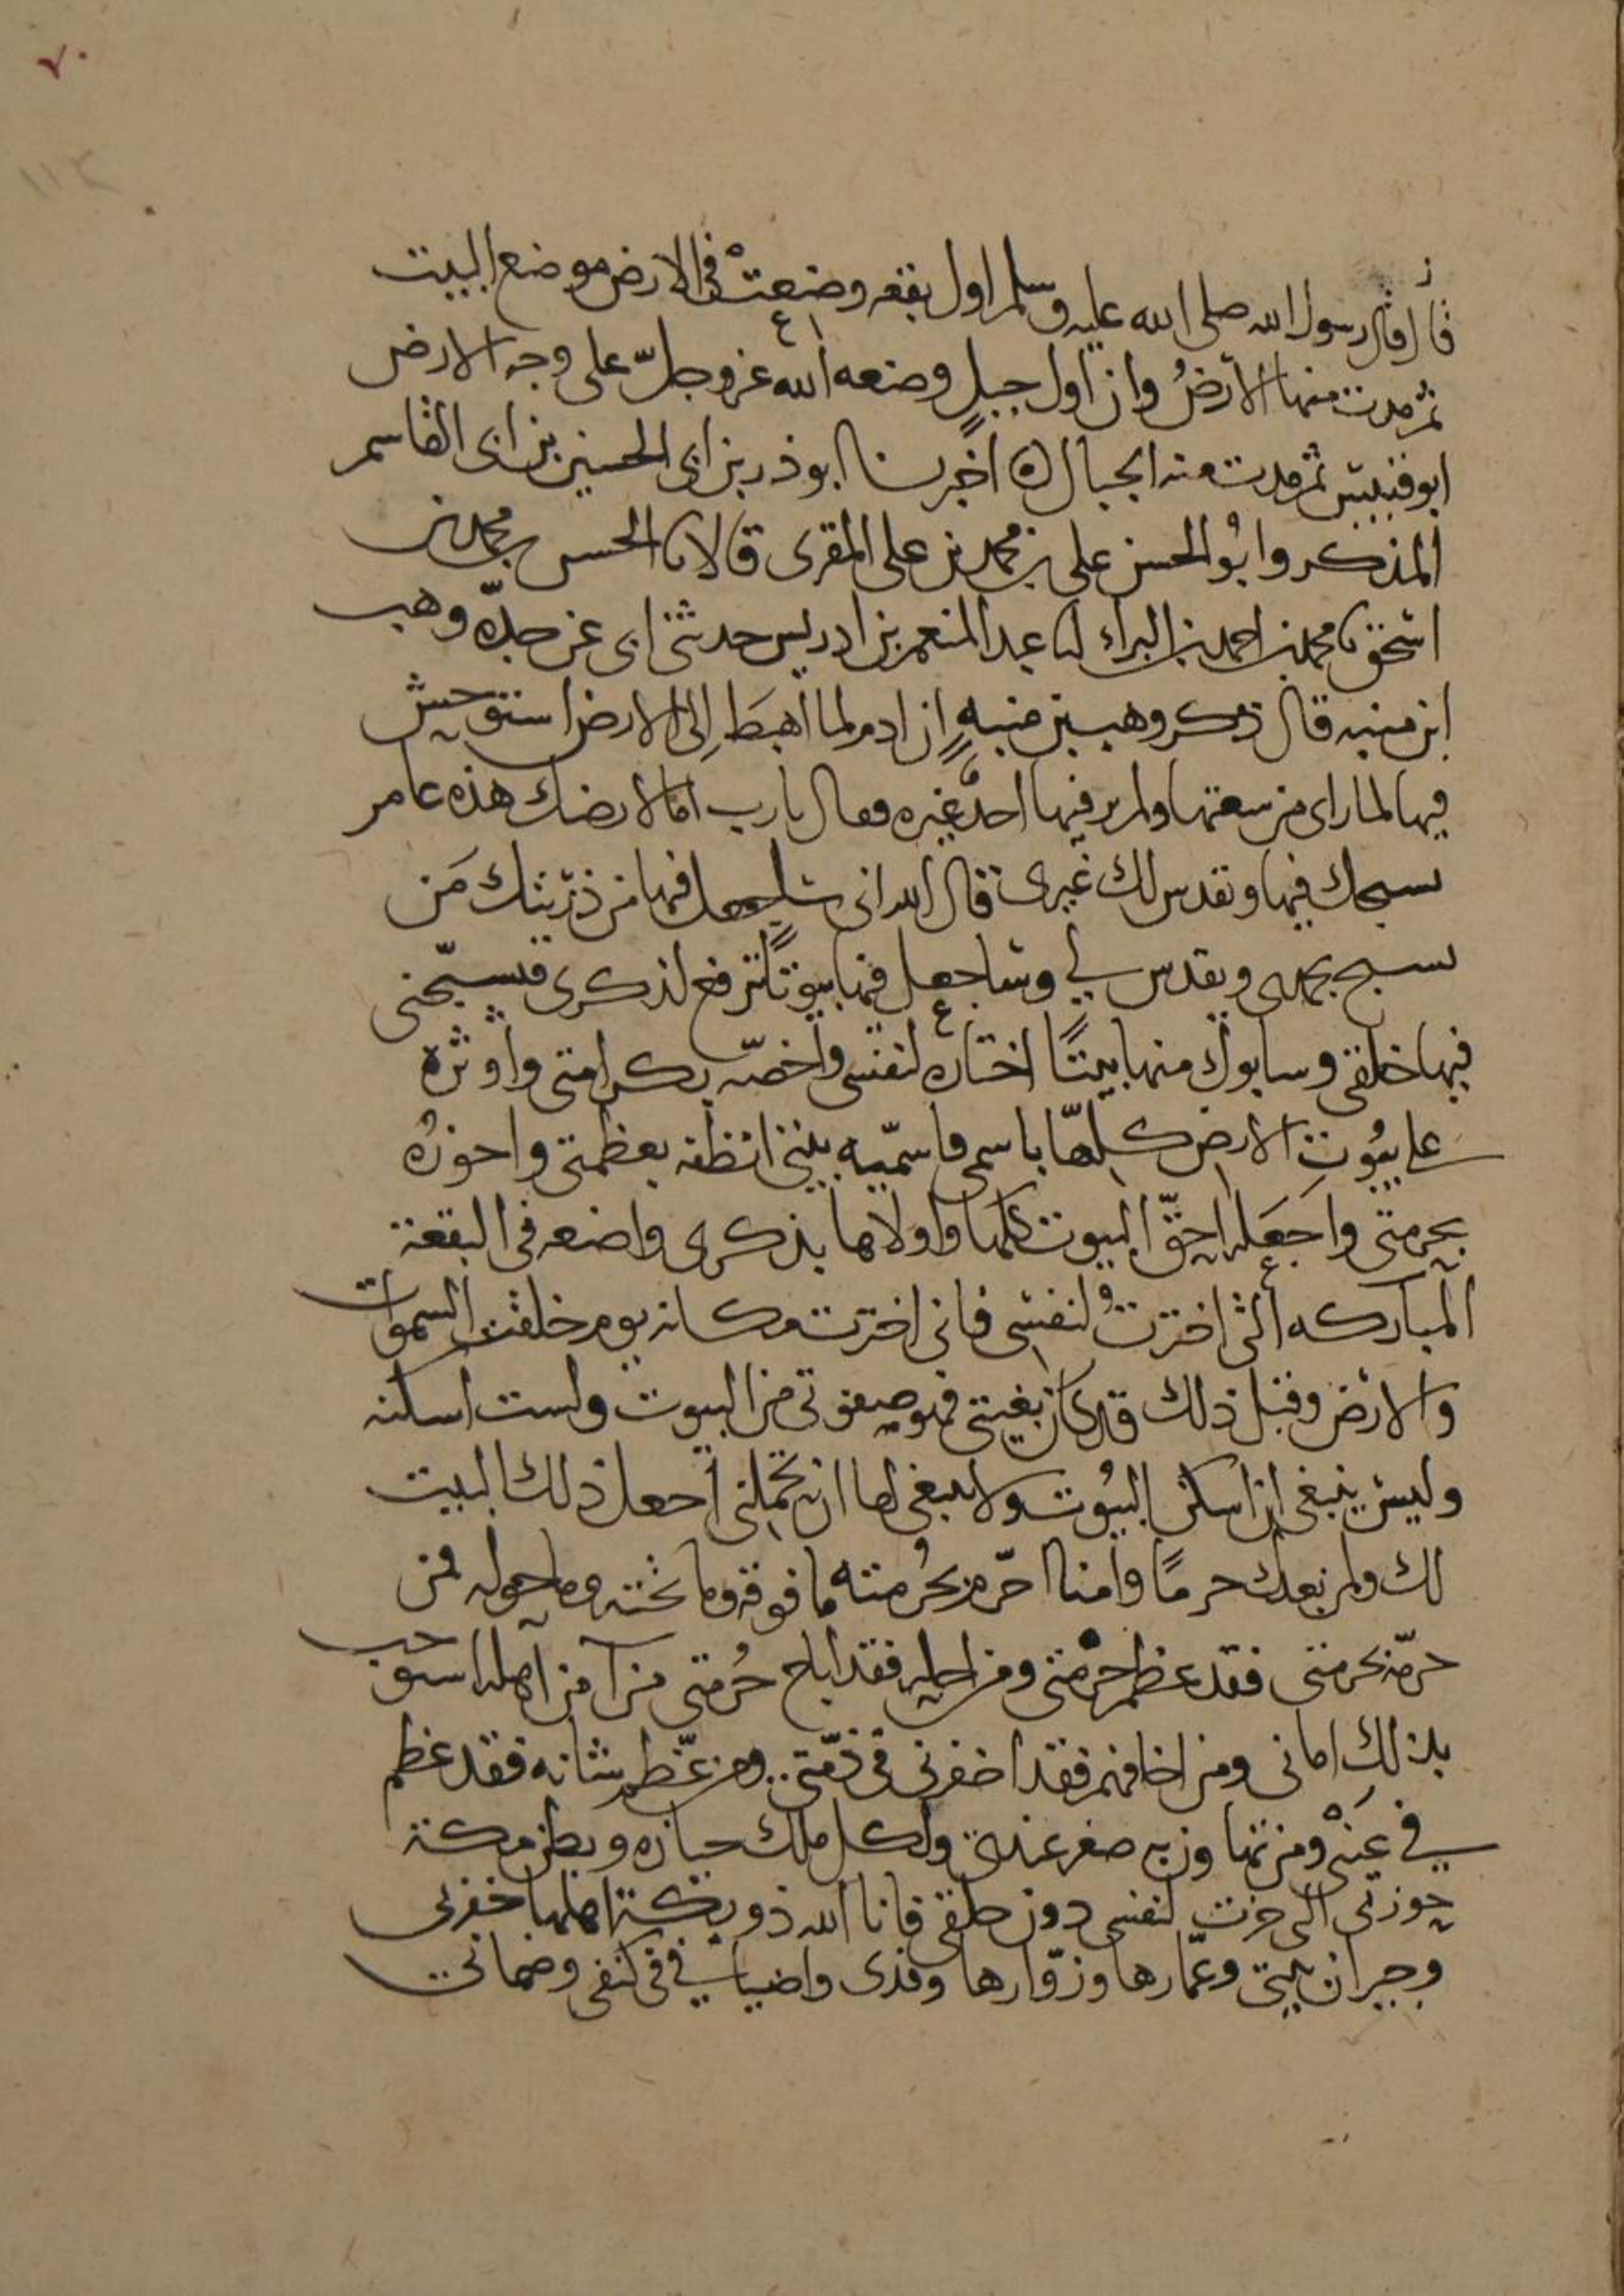 ٧٠
١١٢
قال قال رسول الله صلى الله عليه وسلم اول بقعه وضعت في الارض موضع البيت
ثم مدت منها الارض وان اول جبل وضعه الله عز وجل على وجه الارض
ابو قبيس ثم مدت منه الجبال ه اخبرنا ابو ذر بن ابي الحسين بن ابي القاسم
المذكر وابو الحسن علي بن محمد بن علي المقرى قالا نا الحسن بن محمد بن
اسحق نا محمد بن احمد بن البراء نا عبد المنعم بن ادريس حدثني ابي عن جده وهب
ابن منبه قال ذكر وهب بن منبه ان ادم لما اهبط الى الارض استوحش
فيها لما راى من سعتها ولم ير فيها احد غيره فقال يا رب اما لارضك هذه عامر
يسبحك فيها ويقدس لك غيرى قال الله اني ساجعل فيها من ذريتك من
يسبح بحمدى ويقدس لي وساجعل فيها بيوتا ترفع لذكرى فيسبحني
فيها خلقى وسابوك منها بيتا اختاره لنفسى واخصه بكرامتى واوثره
على بيوت الارض كلها باسمى فاسميه بيتى انطقه بعظمتى واحوزه
بحرمتى واجعله احق البيوت كلها واولاها بذكرى واضعه في البقعة
المباركه التى اخترت لنفسى فانى اخترت مكانه يوم خلقت السموات
والارض وقبل ذلك قد كان بغيتى فهو صفوتى من البيوت ولست اسكنه
وليس ينبغى ان اسكن البيوت ولا ينبغى لها ان تحملنى اجعل ذلك البيت
لك ولمن بعدك حرما وامنا احرم بحرمته ما فوقه وما تحته وما حوله فمن
حرمه بحرمتى فقد عظم حرمتى ومن احله فقد اباح حرمتى من آمن اهله استوجب
بذلك امانى ومن اخافهم فقد اخفرنى فى ذمتى ومن عظم شانه فقد عظم
في عينى ومن تهاون به صغر عندى ولكل ملك حيازه وبطن مكة
حوزتى التى حزت لنفسى دون خلقى فانا الله ذو بكة اهلها خفرتى
وجيران بيتى وعمارها وزوارها وفدى واضيافي في كنفى وضمانى